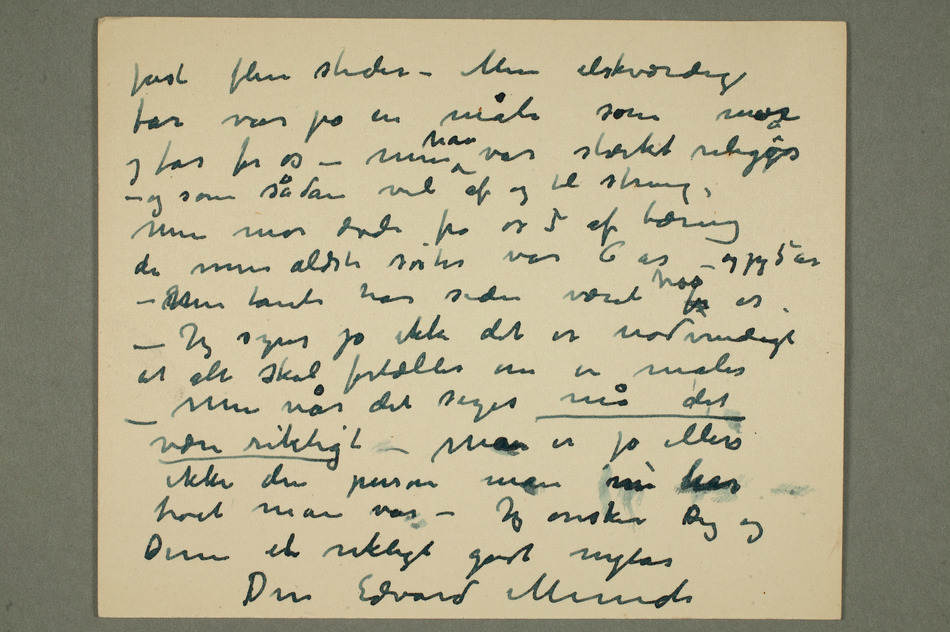 just flere steder – Min elskværdige
far var jo en måte som mor
og far for os – men han var stærkt religiøs
– og som sådan vel af og til streng,
Min mor døde fra os 5 af tæring
da min ældste søster var 6 år – og jeg 5 år
– Min tante har siden været hos os.
– Jeg synes jo ikke det er nødvendigt
at alt skal fortælles om en maler
– Men når det siges må det
være riktigt – Man er jo ellers
ikke den person man har
troet man var – Jeg ønsker Dig og
Dine et riktigt godt nytår
Din Edvard Munch